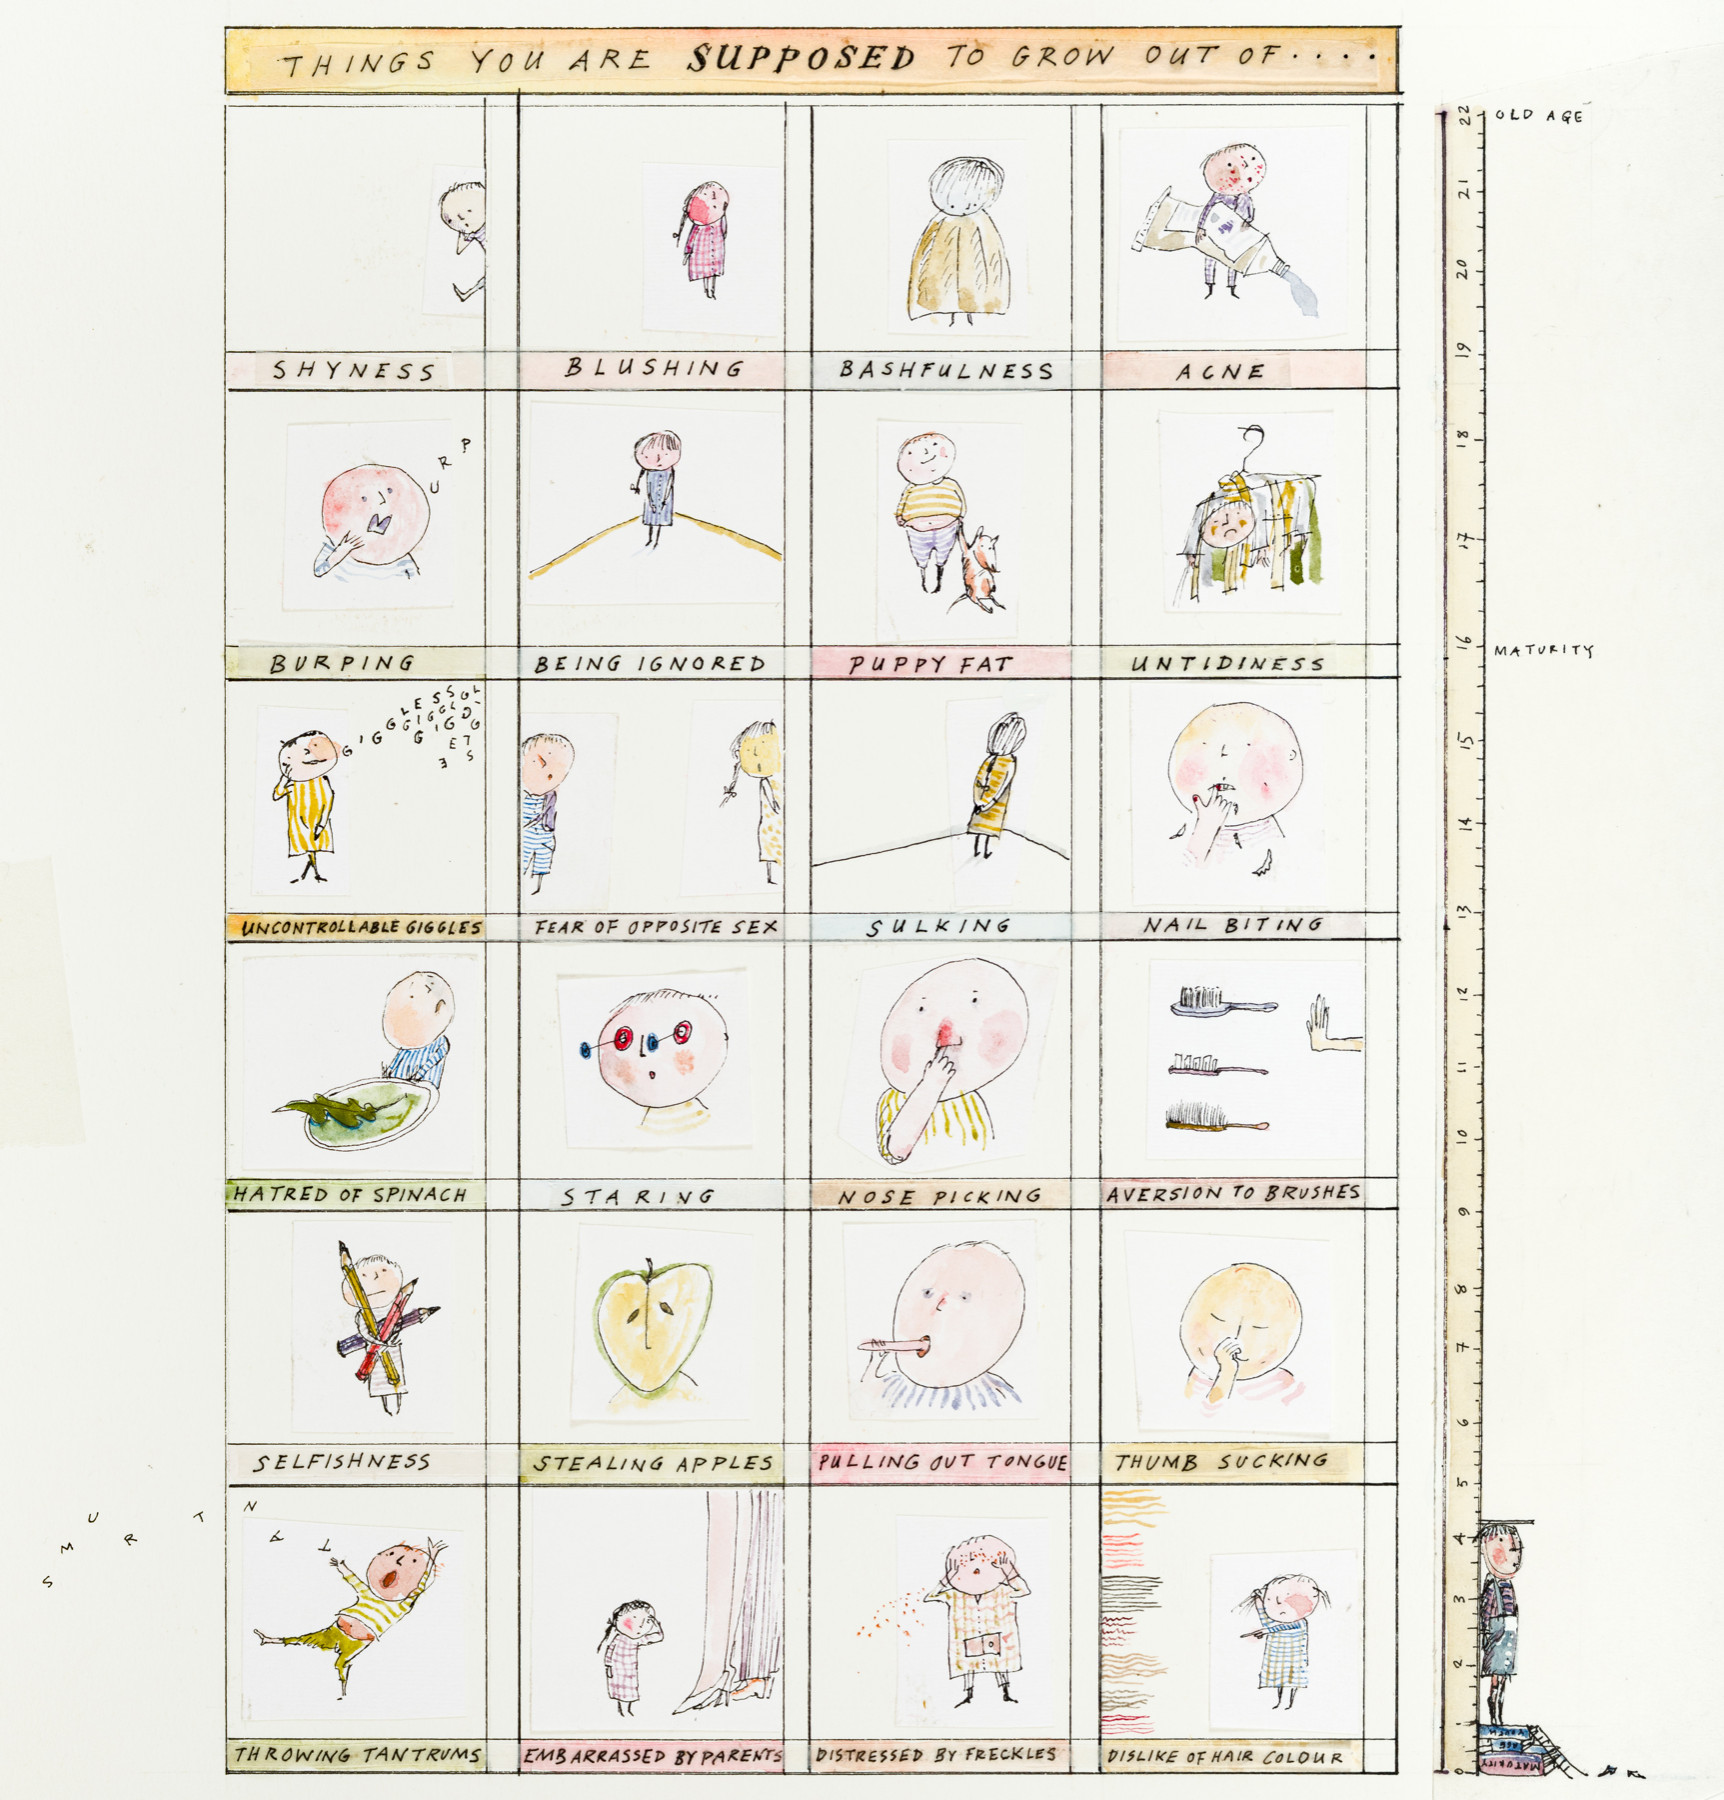 THINGS YOU ARE SUPPOSED TO GROW OUT OF....
SHYNESS
BLUSHING
BASHFULNESS
ACNE
URP
BURPING
BEING IGNORED
PUPPY FAT
UNTIDINESS
UNCONTROLLABLE GIGGLES
FEAR OF OPPOSITE SEX
SULKING
NAIL BITING
HATRED OF SPINACH
STARING
NOSE PICKING
AVERSION TO BRUSHES
SELFISHNESS
STEALING APPLES
PULLING OUT TONGUE
THUMB SUCKING
TANTRUMS
THROWING TANTRUMS
EMBARRASSED BY PARENTS
DISTRESSED BY FRECKLES
DISLIKE OF HAIR COLOUR
22 OLD AGE
21
20
19
18
17
16 MATURITY
15
14
13
12
11
10
9
8
7
6
5
4
3
2
1
0
AGE
MATURITY